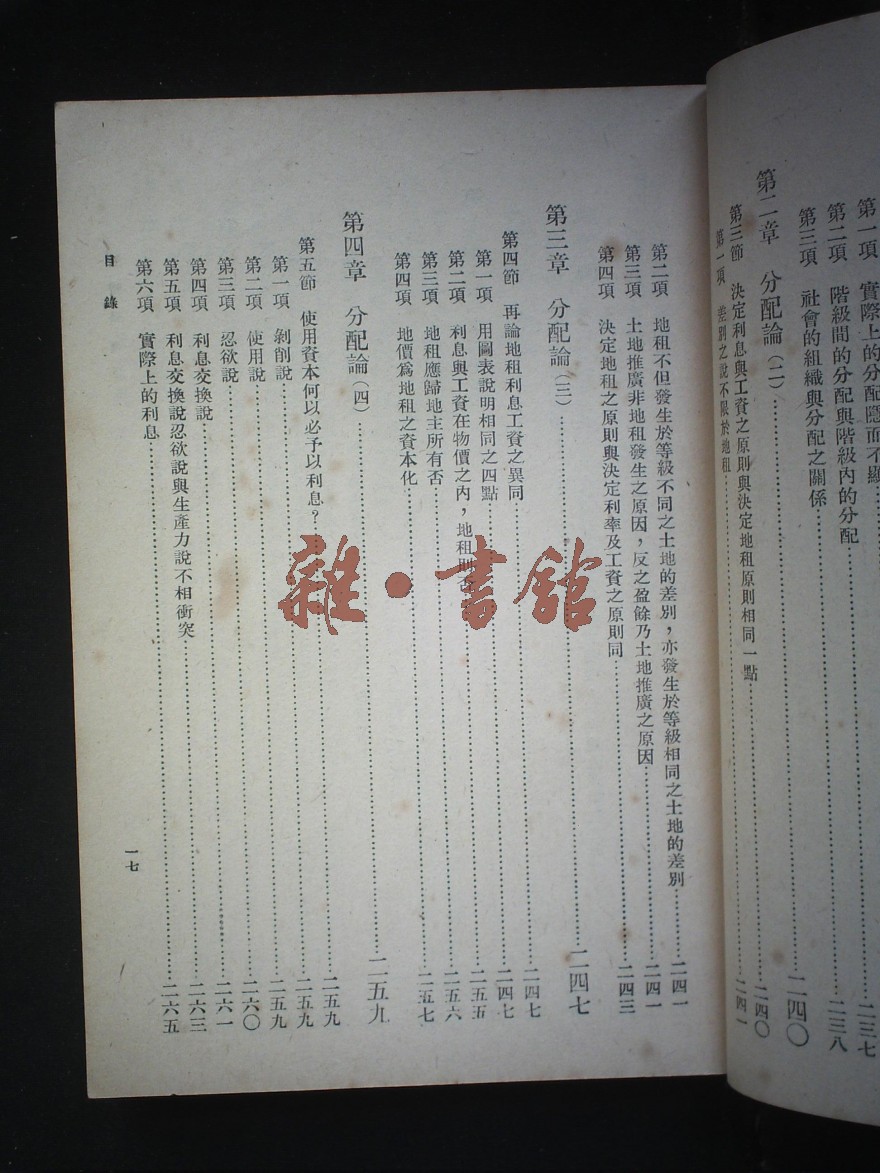 第一項 實際上的分配隱而不顯
第二項 階級間的分配與階級內的分配……二三七
第三項 社會的組織與分配之關係……二三八
第二章 分配論(二)……二四〇
第三節 決定利息與工資之原則與決定地租原則相同一點……二四〇
第一項 差別之說不限於地租……二四一
第二項 地租不但發生於等級不同之土地的差別,亦發生於等級相同之土地的差別……二四一
第三項 土地推廣非地租發生之原因,反之盈餘乃土地推廣之原因……二四一
第四項 決定地租之原則與決定利率及工資之原則同……二四三
第三章 分配論(三)……二四七
第四節 再論地租利息工資之異同……二四七
第一項 用圖表說明相同之四點……二四七
第二項 利息與工資在物價之內,地租則否……二五五
第三項 地租應歸地主所有否……二五六
第四項 地價為地租之資本化……二五七
第四章 分配論(四)……二五九
第五節 使用資本何以必予以利息?……二五九
第一項 剝削說……二五九
第二項 使用說……二五九
第三項 忍欲說……二六〇
第四項 利息交換說……二六一
第五項 利息交換說忍欲說與生產力說不相衝突……二六三
第六項 實際上的利息……二六五
目錄
一七
雜·書館